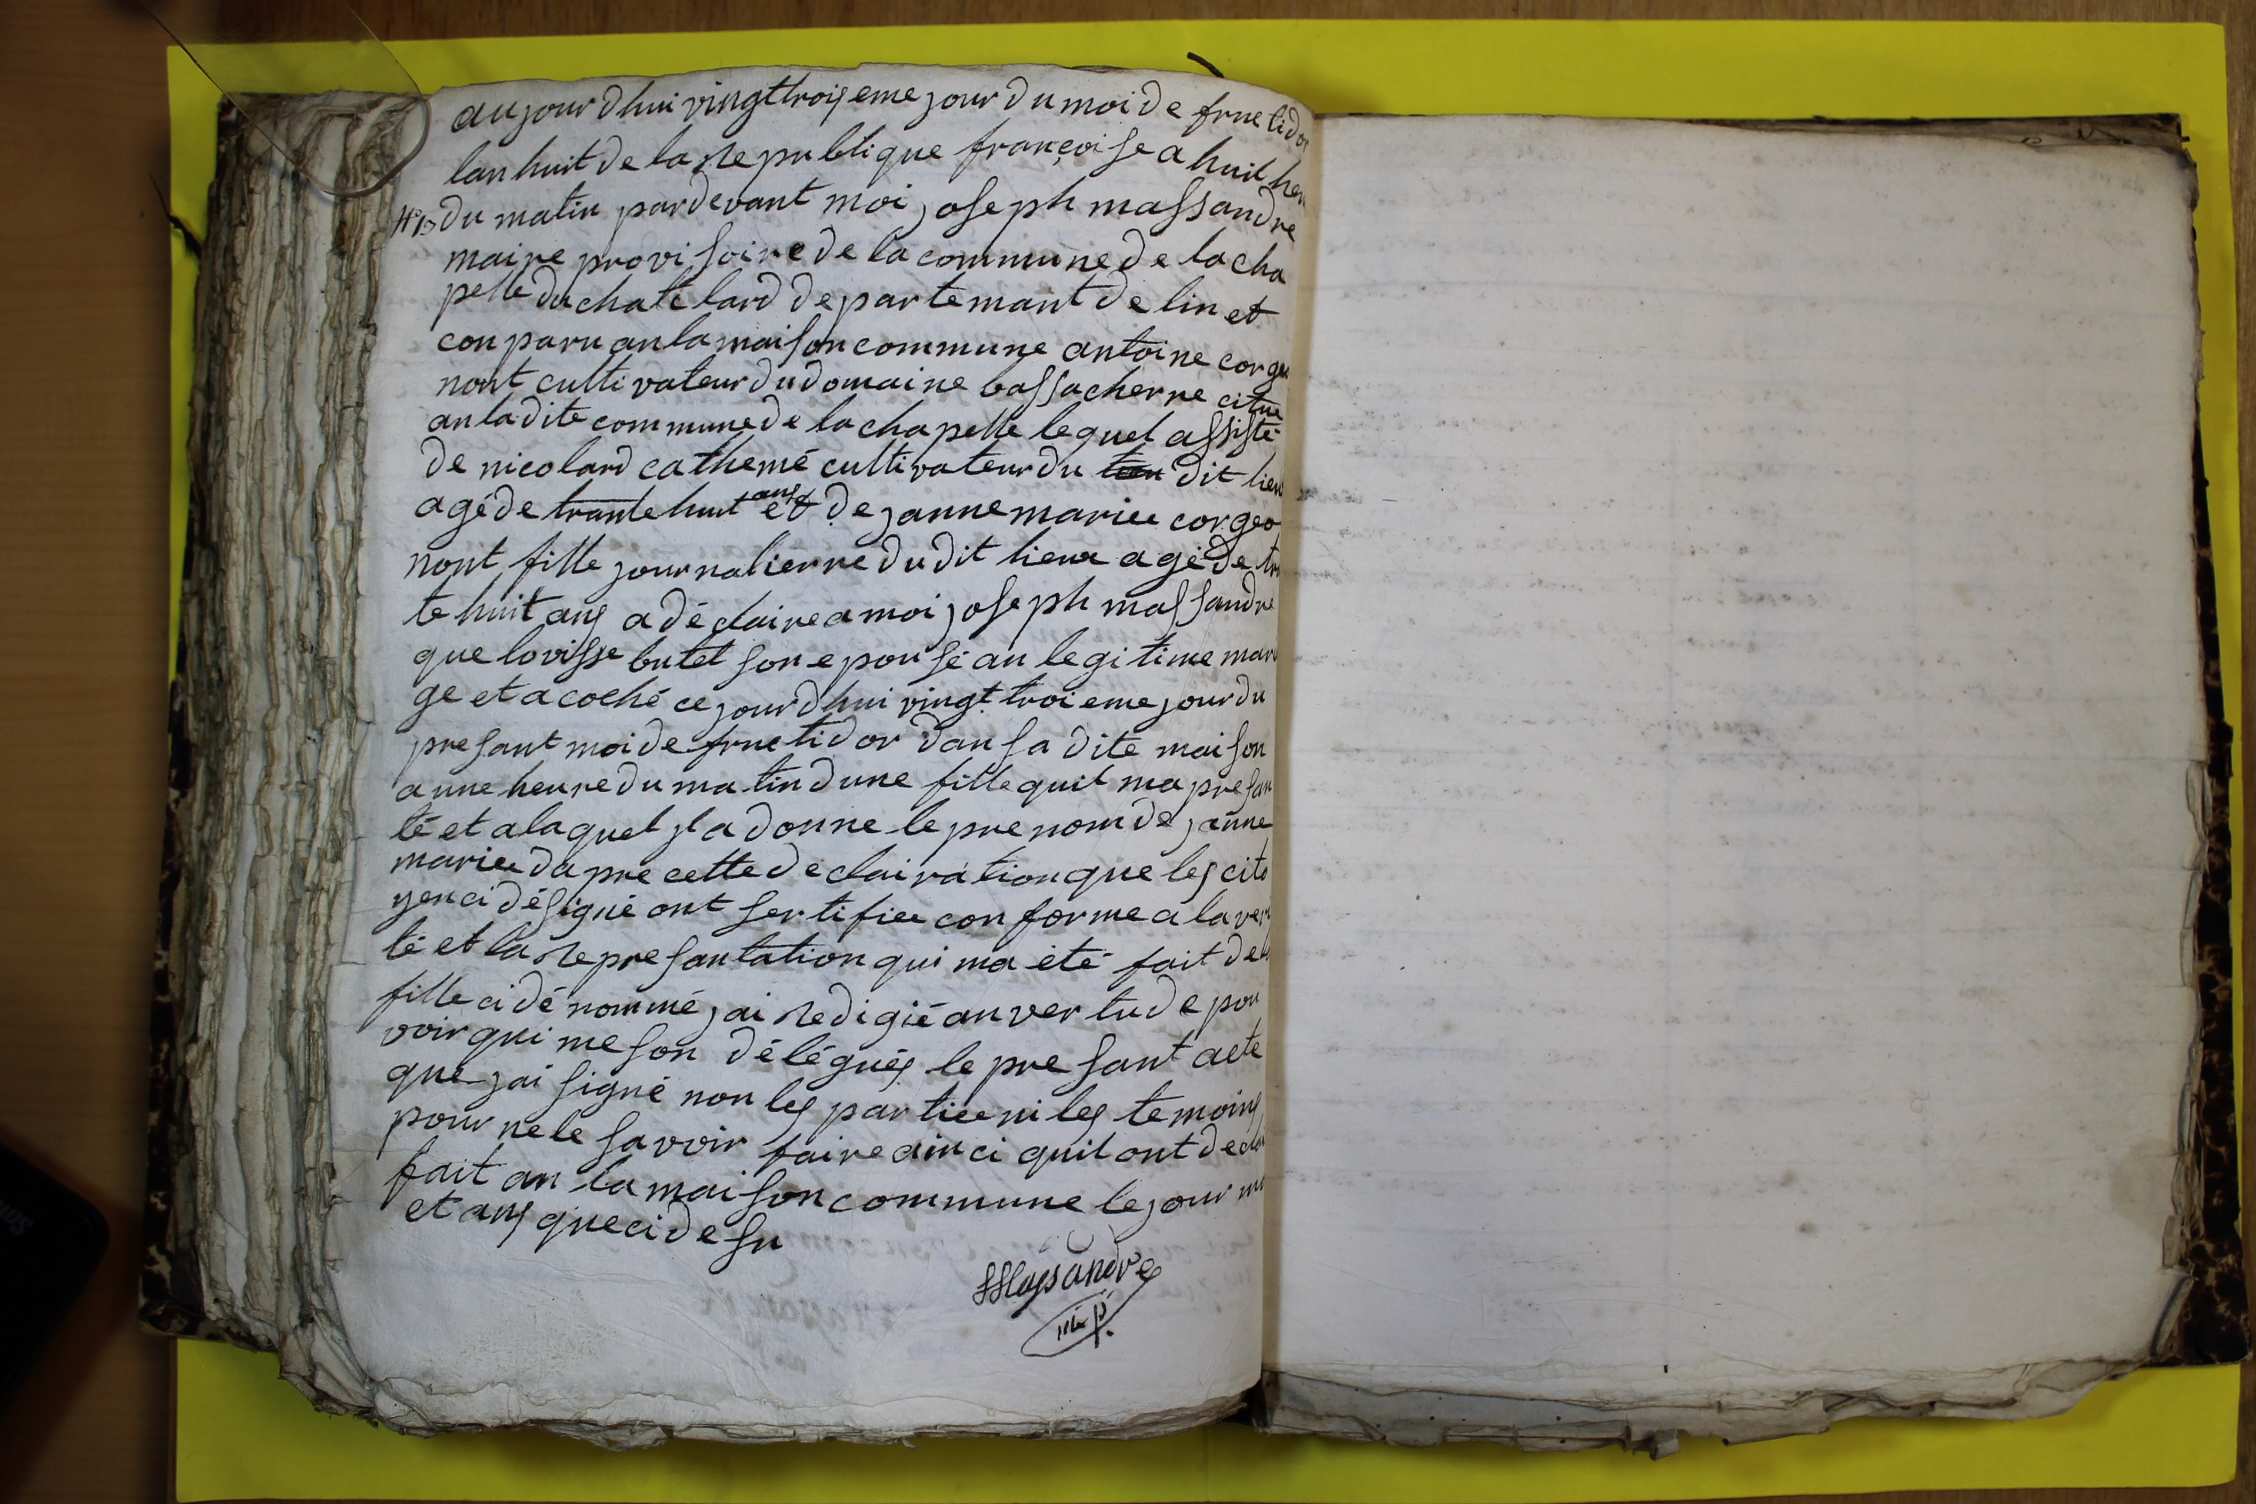 aujourdhui vingttroiseme jour du moi de fructidor
lan huit de la republique françoise a huit heu
du matin pardevant moi joseph massandre
maire provisoire de la commune de la cha
pelle du chatelard departemant de lin et
conparu an la maison commune antoine corgeo
nont cultivateur du domaine bassacherne citue
an ladite commune de la chapelle lequel assisté
de nicolard cathemé cultivateur du dit lieu
agé de trante huit ans et de janne mariee corgeo
nont fille journalierre du dit lieux agé de tran
te huit ans a déclaire a moi joseph massandre
que lovisse butet son epousé an legitime maria
ge et acoché ce jourdhui vingt troieme jour du
presant moi de fructidor dan sa dite maison
a une heure du matin dune fille quil ma presan
té et a laquel jl a donne le prenom de janne
mariee dapre cette declairation que les cito
yen ci désigné ont sertifiee conforme a la veri
té et la represantation qui ma été fait de la
fille ci dénommé jai redigié an vertu de pou
voir qui me son délégués le presant acte
que jai signé non les partiee ni les temoins
pour ne le savoir faire ainci quil ont declai
fait an la maison commune le jour moi
et ans que ci desu
JMassandre